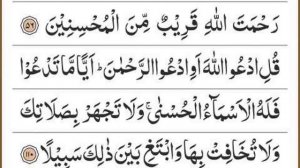 رَحْمَتَ اللّٰهِ قَرِيْبٌ مِّنَ الْمُحْسِنِيْنَ ﴿۵۶﴾
قُلِ ادْعُوا اللّٰهَ اَوِ ادْعُوا الرَّحْمٰنَ ؕ اَيًّا مَّا تَدْعُوْا
فَلَهُ الْاَسْمَآءُ الْحُسْنٰى ۚ وَلَا تَجْهَرْ بِصَلَاتِكَ
وَلَا تُخَافِتْ بِهَا وَابْتَغِ بَيْنَ ذٰلِكَ سَبِيْلًا ﴿۱۱۰﴾